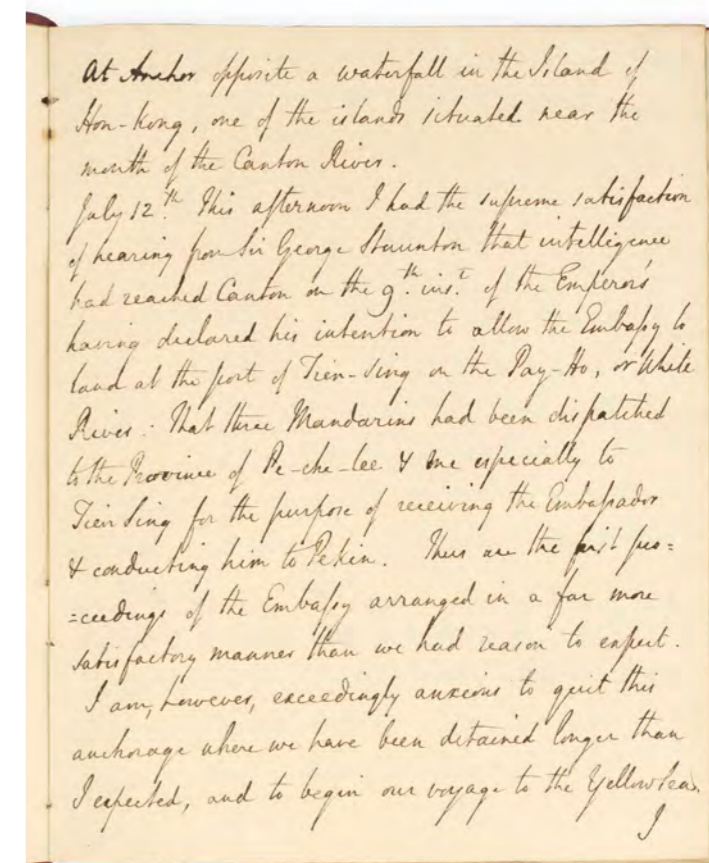 At Anchor opposite a waterfall in the Island of
Hon-kong, one of the islands situated near the
mouth of the Canton River.
July 12.th This afternoon I had the supreme satisfaction
of hearing from Sir George Staunton that intelligence
had reached Canton on the 9.th ins.t of the Emperor's
having declared his intention to allow the Embaſsy to
land at the port of Tien-Sing on the Pay-Ho, or White
River: That three Mandarins had been dispatched
to the Province of Pe-che-lee & one especially to
Tien Sing for the purpose of receiving the Embaſsador
& conducting him to Pekin. Thus are the first pro=
=ceedings of the Embaſsy arranged in a far more
satisfactory manner than we had reason to expect.
I am, however, exceedingly anxious to quit this
anchorage where we have been detained longer than
I expected, and to begin our voyage to the Yellow Sea.
I